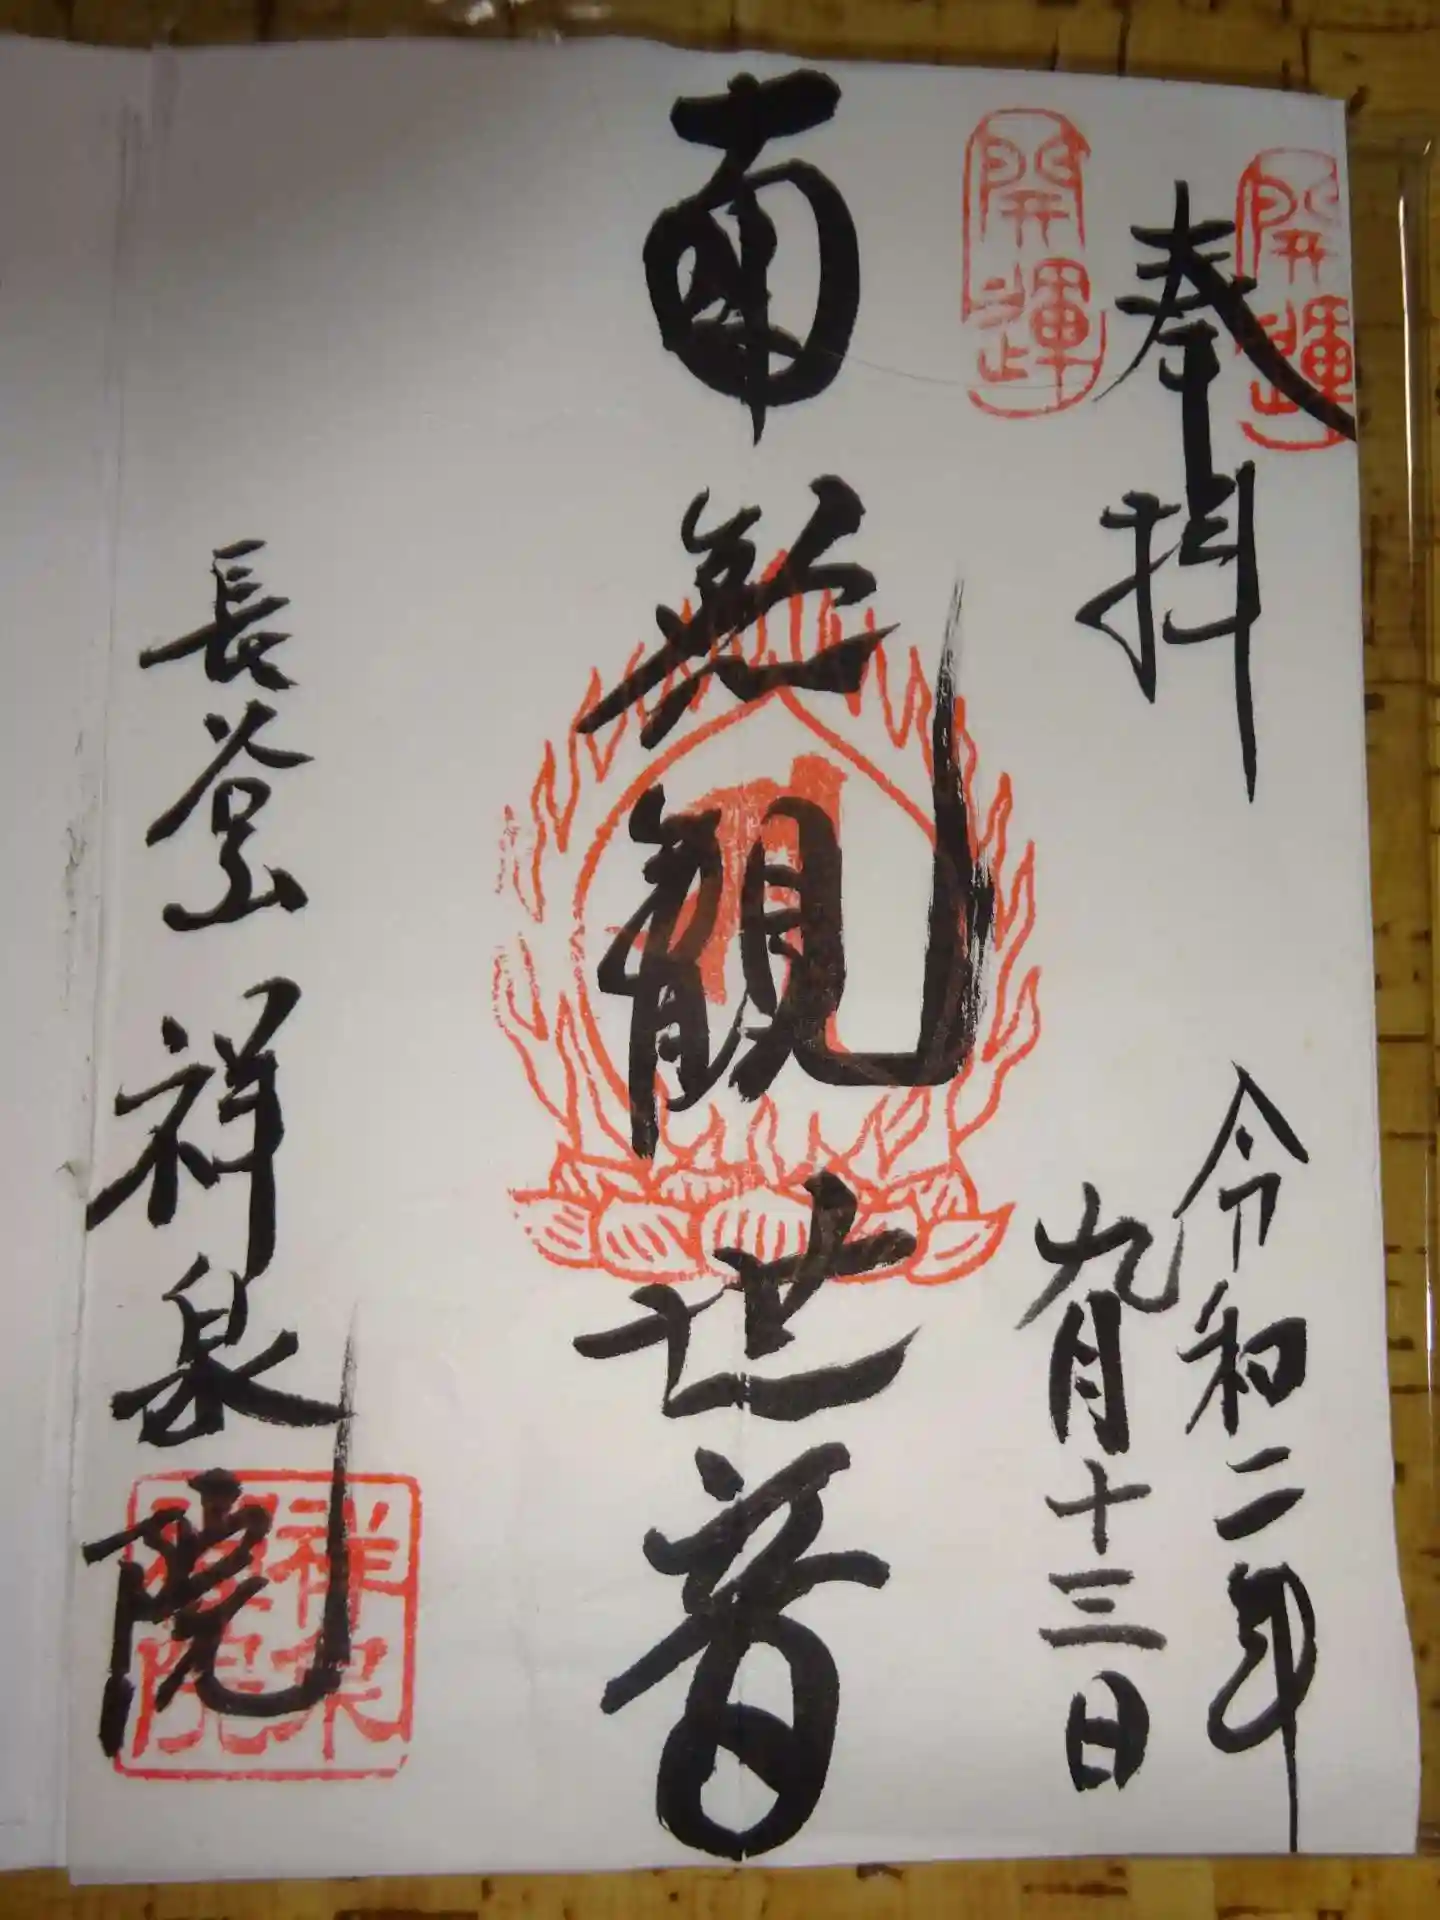 開運
奉拝
令和二年
九月十三日
開運
南無観世音
長谷山 祥泉院
祥泉
院